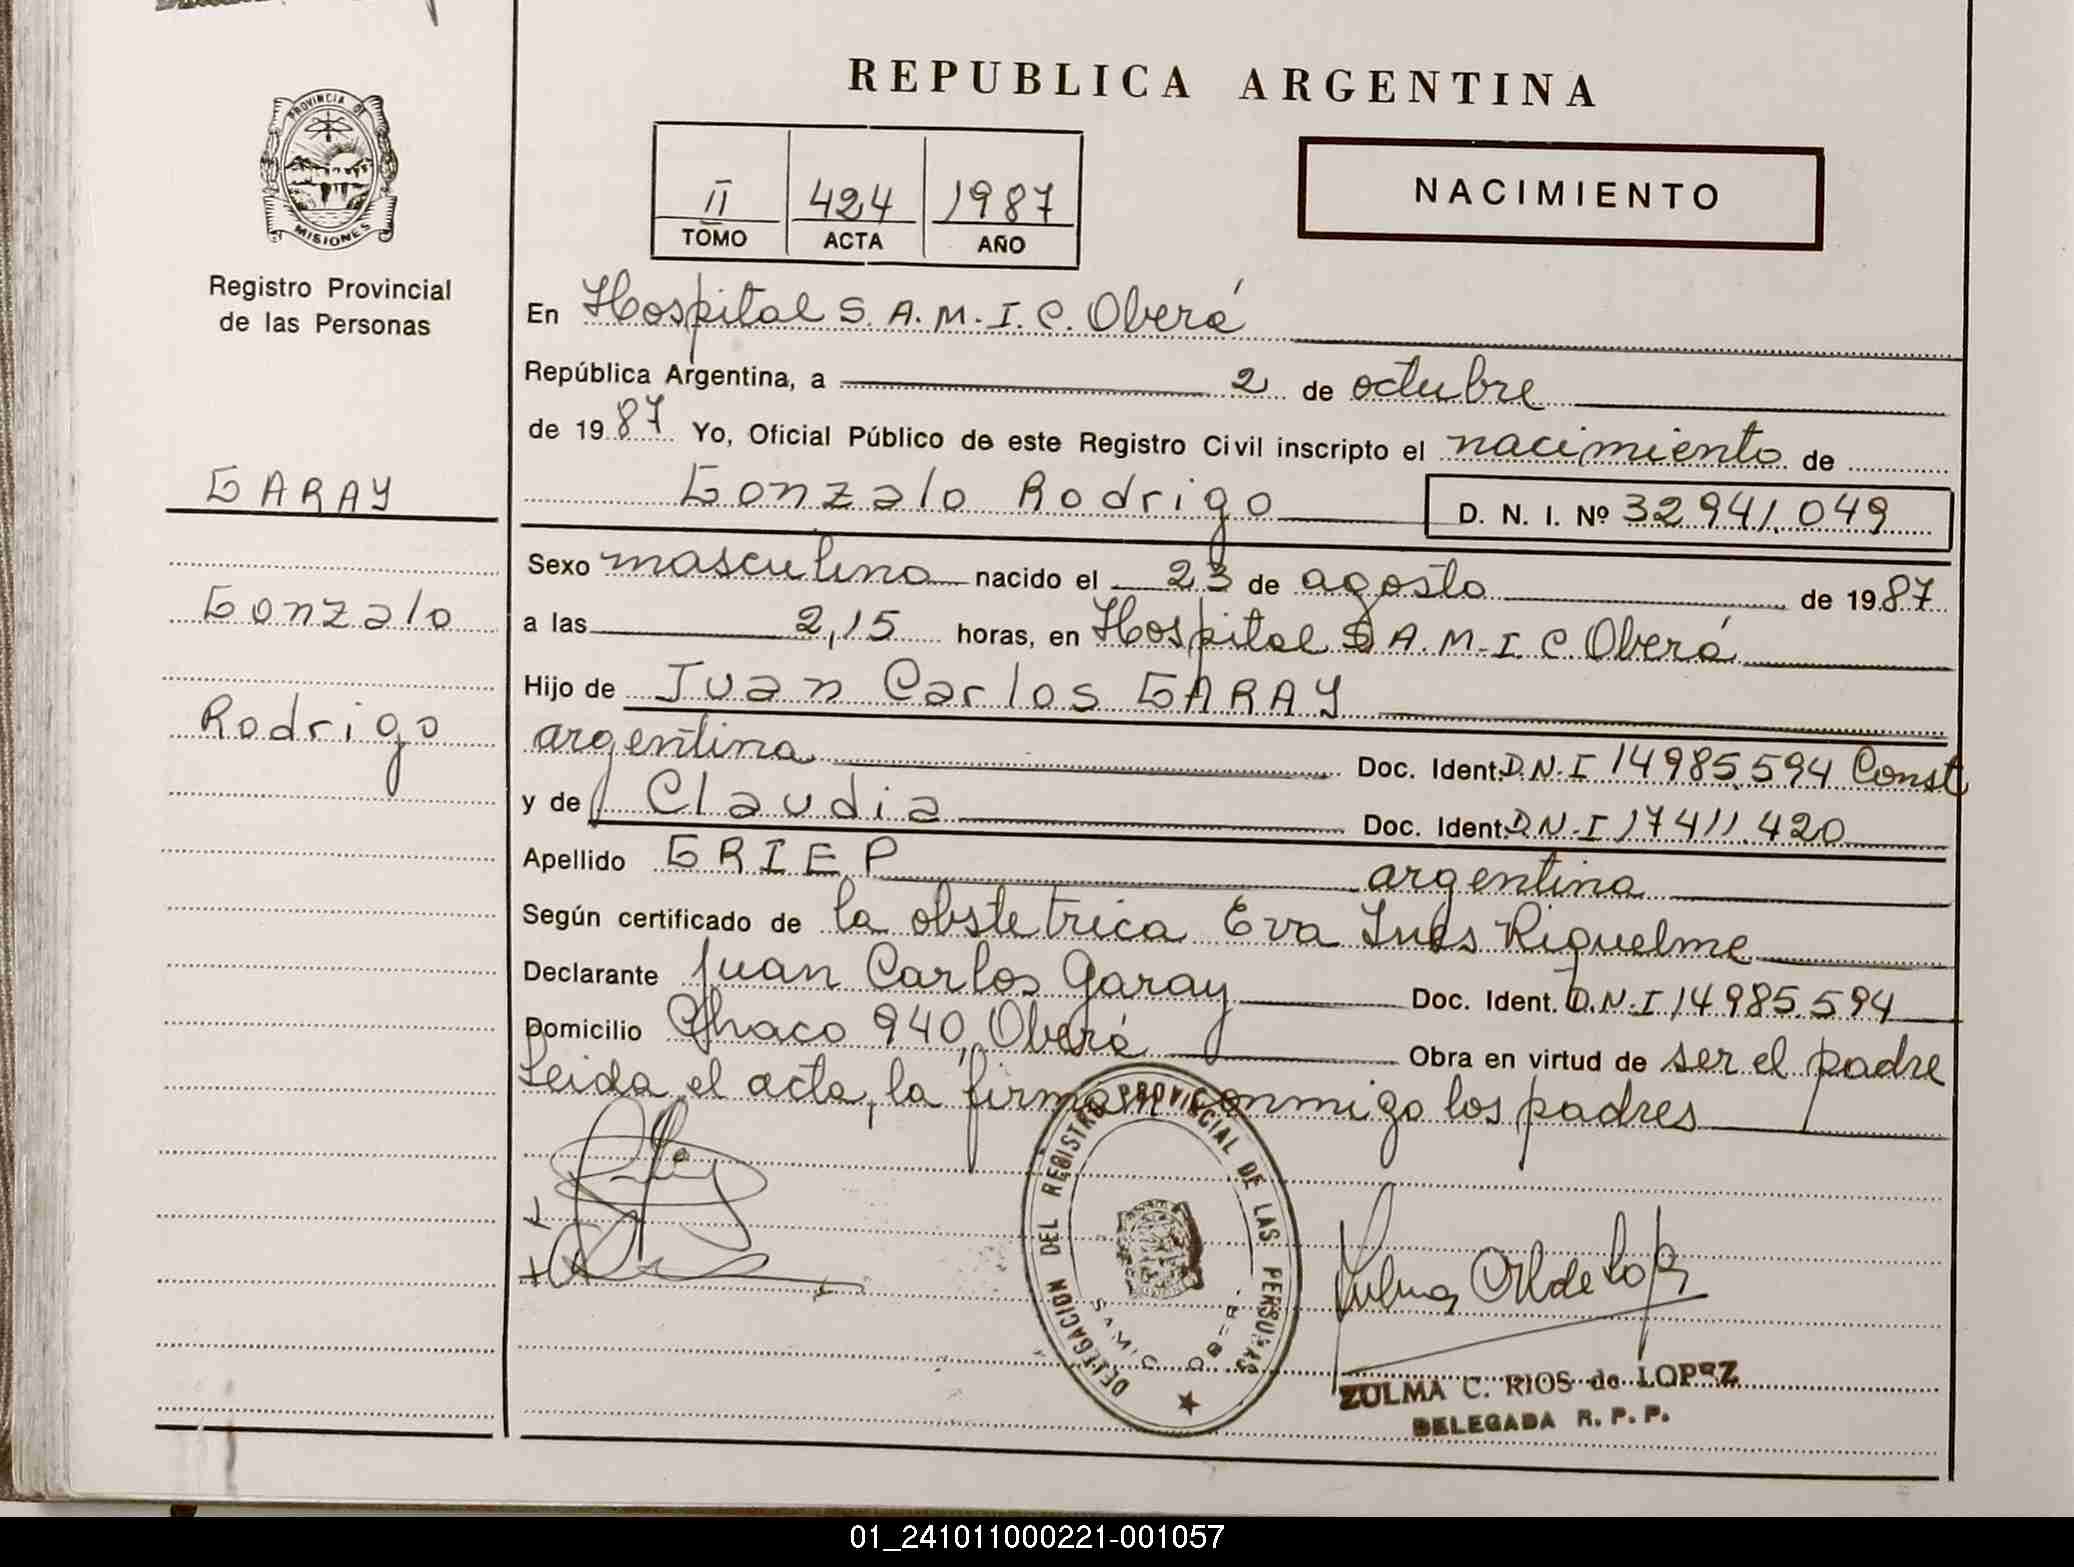 REPUBLICA ARGENTINA
PROVINCIA DE
MISIONES
Registro Provincial
de las Personas
II 424 1987
TOMO ACTA AÑO
NACIMIENTO
En Hospital S. A. M. I. C. Oberá
República Argentina, a 2 de octubre
de 1987 Yo, Oficial Público de este Registro Civil inscripto el nacimiento de
Gonzalo Rodrigo D. N. I. Nº 32941.049
GARAY
Gonzalo
Rodrigo
Sexo masculino nacido el 23 de agosto de 1987
a las 2,15 horas, en Hospital S A. M. I. C. Oberá
Hijo de Juan Carlos GARAY
argentina Doc. Ident. D.N.I 14985.594 Const
y de Claudia Doc. Ident. D.N.I 17411.420
Apellido GRIEP argentina
Según certificado de la obstetrica Eva Inés Riquelme
Declarante Juan Carlos Garay Doc. Ident. D.N.I 14985.594
Domicilio Chaco 940, Oberá Obra en virtud de ser el padre
Leida el acta, la firman conmigo los padres
DELEGACION DEL REGISTRO PROVINCIAL DE LAS PERSONAS
SAMIC OBERA
ZULMA C. RIOS de LOPEZ
DELEGADA R. P. P.
01_241011000221-001057